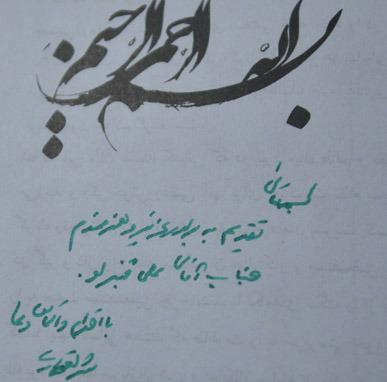 بسم الله الرحمن الرحیم
بسمه تعالی
تقدیم به برادر عزیز و هنرمندم
جناب آقای علی قنبرلو.
با احترام و التماس دعا